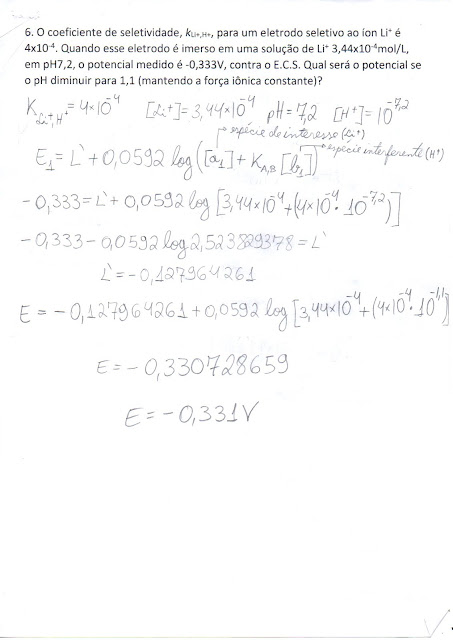 6. O coeficiente de seletividade, kLi+,H+, para um eletrodo seletivo ao íon Li⁺ é
4x10⁻⁴. Quando esse eletrodo é imerso em uma solução de Li⁺ 3,44x10⁻⁴mol/L,
em pH7,2, o potencial medido é -0,333V, contra o E.C.S. Qual será o potencial se
o pH diminuir para 1,1 (mantendo a força iônica constante)?
K Li⁺,H⁺ = 4×10⁻⁴ [Li⁺] = 3,44×10⁻⁴ pH = 7,2 [H⁺] = 10⁻⁷,²
espécie de interesse (Li⁺)
E₁ = L` + 0,0592 log ([a₁] + K A,B [b₁]) espécie interferente (H⁺)
- 0,333 = L` + 0,0592 log [3,44×10⁻⁴ + (4×10⁻⁴ · 10⁻⁷,²)]
- 0,333 - 0,0592 log 2,523829378 = L`
L` = - 0,127964261
E = - 0,127964261 + 0,0592 log [3,44×10⁻⁴ + (4×10⁻⁴ · 10⁻¹,¹]
E = - 0,330728659
E = - 0,331V